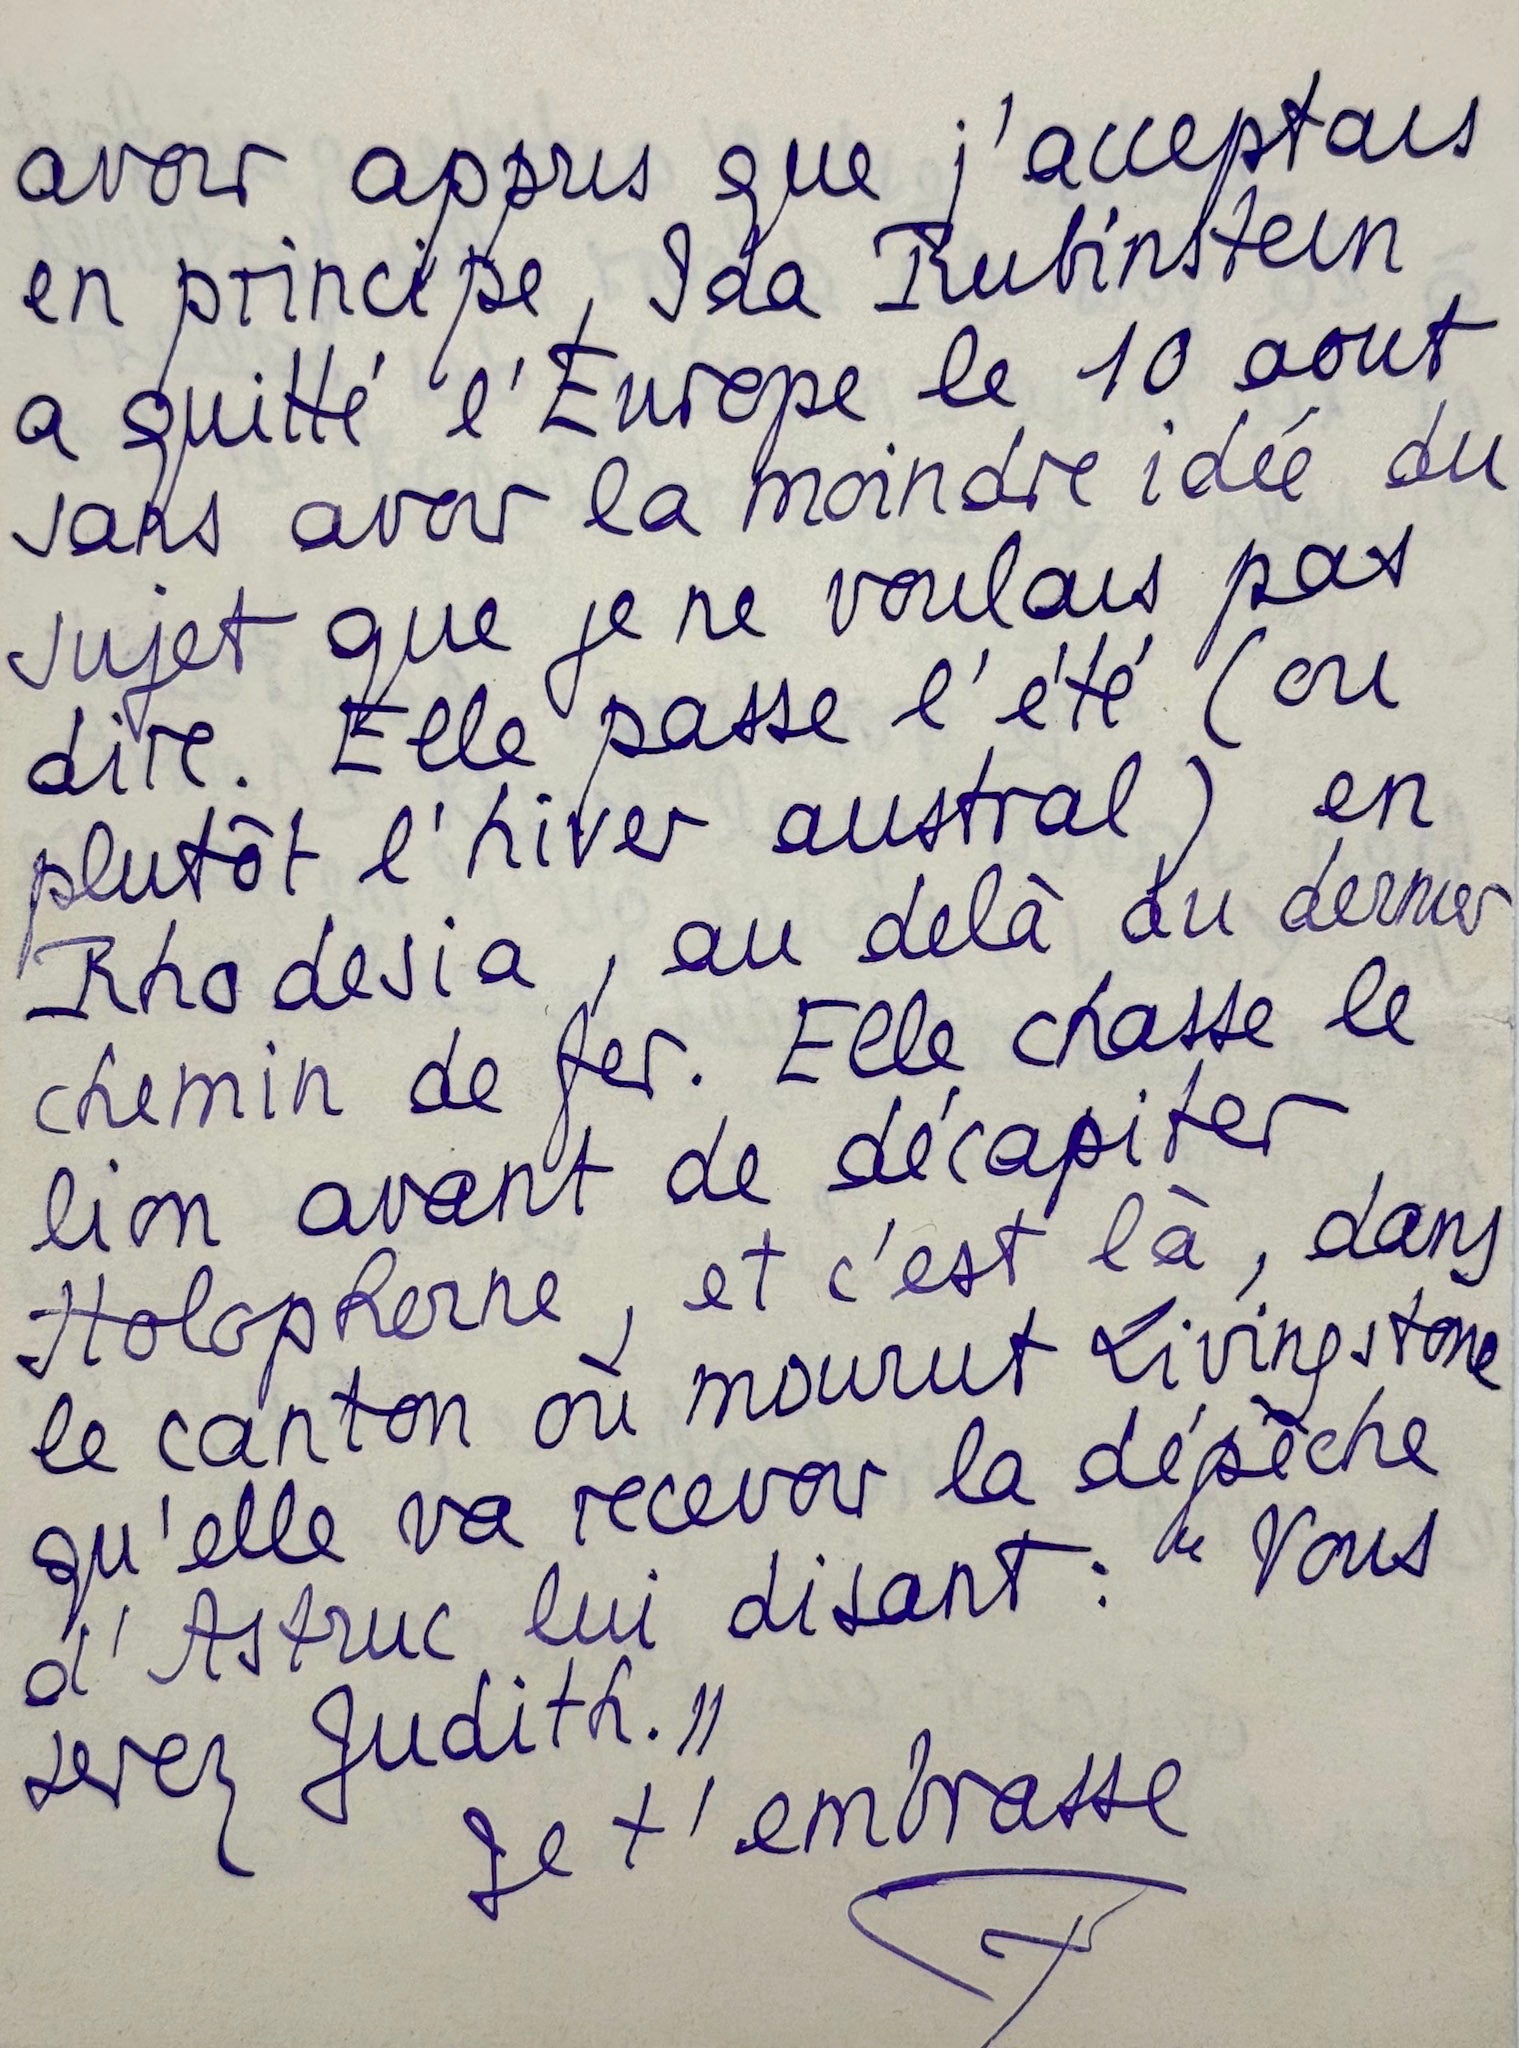 avoir appris que j'acceptais
en principe, Ida Rubinstein
a quitté l'Europe le 10 aout
sans avoir la moindre idée du
sujet que je ne voulais pas
dire. Elle passe l'été (ou
plutôt l'hiver austral) en
Rhodesia, au delà du dernier
chemin de fer. Elle chasse le
lion avant de décapiter
Holopherne, et c'est là, dans
le canton où mourut Livingstone
qu'elle va recevoir la dépêche
d'Astruc lui disant : " Vous
serez Judith. "
Je t'embrasse